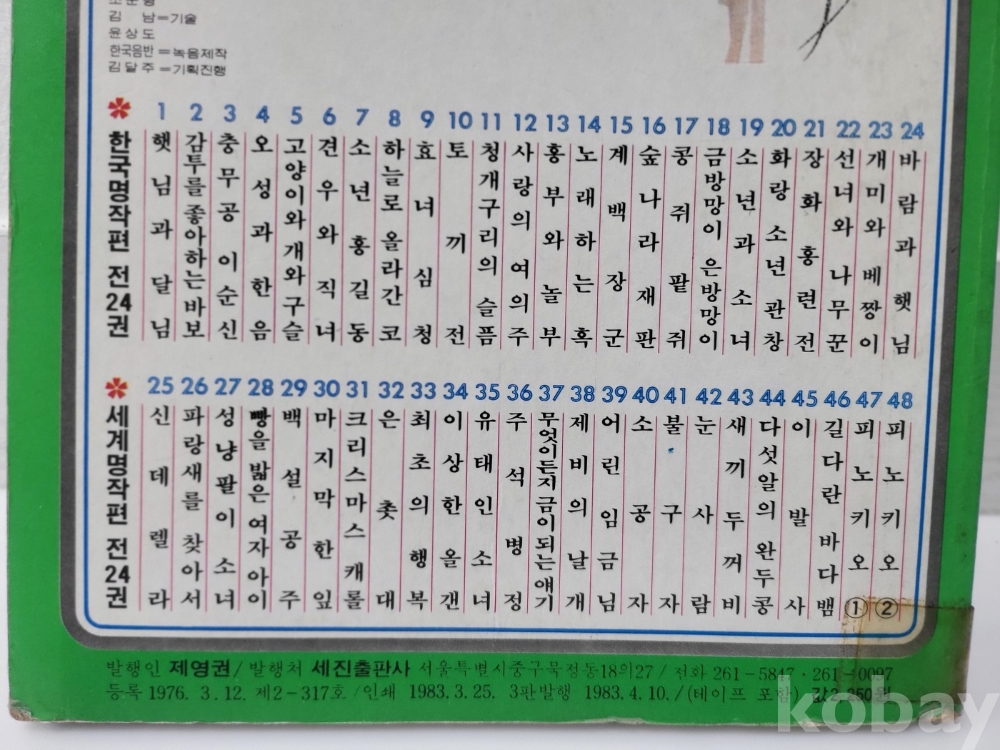 김 남=기술
윤상도
한국음반=녹음제작
김달주=기획진행
한국명작편 전24권
1 햇님과달님
2 감투를좋아하는바보
3 충무공이순신
4 오성과한음
5 고양이와개와구슬
6 견우와직녀
7 소년홍길동
8 하늘로올라간코
9 효녀심청
10 토끼전
11 청개구리의슬픔
12 사랑의여의주
13 흥부와놀부
14 노래하는혹
15 계백장군
16 숲나라재판
17 콩쥐팥쥐
18 금방망이은방망이
19 소년과소녀
20 화랑소년관창
21 장화홍련전
22 선녀와나무꾼
23 개미와베짱이
24 바람과햇님
세계명작편 전24권
25 신데렐라
26 파랑새를찾아서
27 성냥팔이소녀
28 빵을밟은여자아이
29 백설공주
30 마지막한잎
31 크리스마스캐롤
32 은촛대
33 최초의행복
34 이상한올갠
35 유태인소녀
36 주석병정
37 무엇이든지금이되는얘기
38 제비의날개
39 어린임금님
40 소공자
41 불구자
42 눈사람
43 새끼두꺼비
44 다섯알의완두콩
45 이발사
46 길다란바다뱀
47 피노키오①
48 피노키오②
발행인 제영권/발행처 세진출판사 서울특별시중구묵정동18의27/전화 261-5847·261-0097
등록 1976. 3. 12. 제2-317호/인쇄 1983.3.25. 3판발행 1983.4.10./(테이프 포함) 값
kobay